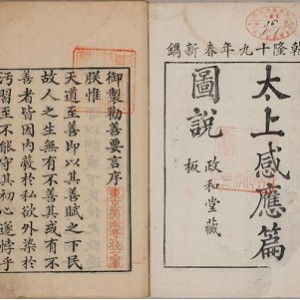 乾隆十九年春新鐫
太上感應篇
圖說
政和堂藏
板
御製勸善要言序
朕惟
天道至善即以其善賦之下民
故人之生無有不善其或有不
善者皆因內蔽於私欲外染於
汚習至不能守其初心遂悖乎